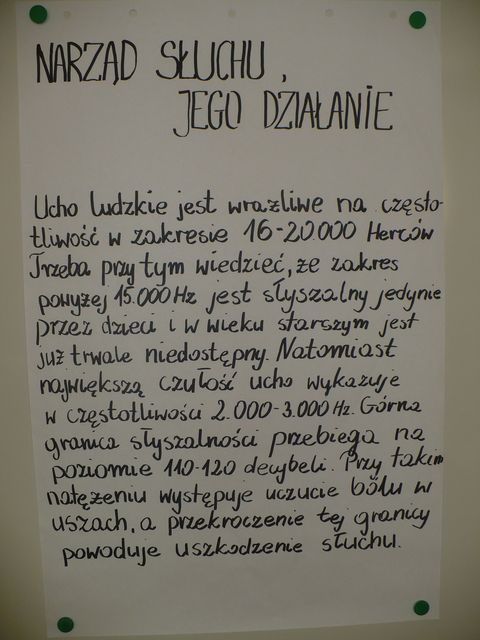 NARZĄD SŁUCHU,
JEGO DZIAŁANIE
Ucho ludzkie jest wrażliwe na często-
tliwość w zakresie 16-20.000 Herców
Trzeba przy tym wiedzieć, że zakres
powyżej 15.000 Hz jest słyszalny jedynie
przez dzieci i w wieku starszym jest
już trwale niedostępny. Natomiast
największą czułość ucho wykazuje
w częstotliwości 2.000-3.000 Hz. Górna
granica słyszalności przebiega na
poziomie 110-120 decybeli. Przy takim
natężeniu występuje uczucie bólu w
uszach, a przekroczenie tej granicy
powoduje uszkodzenie słuchu.